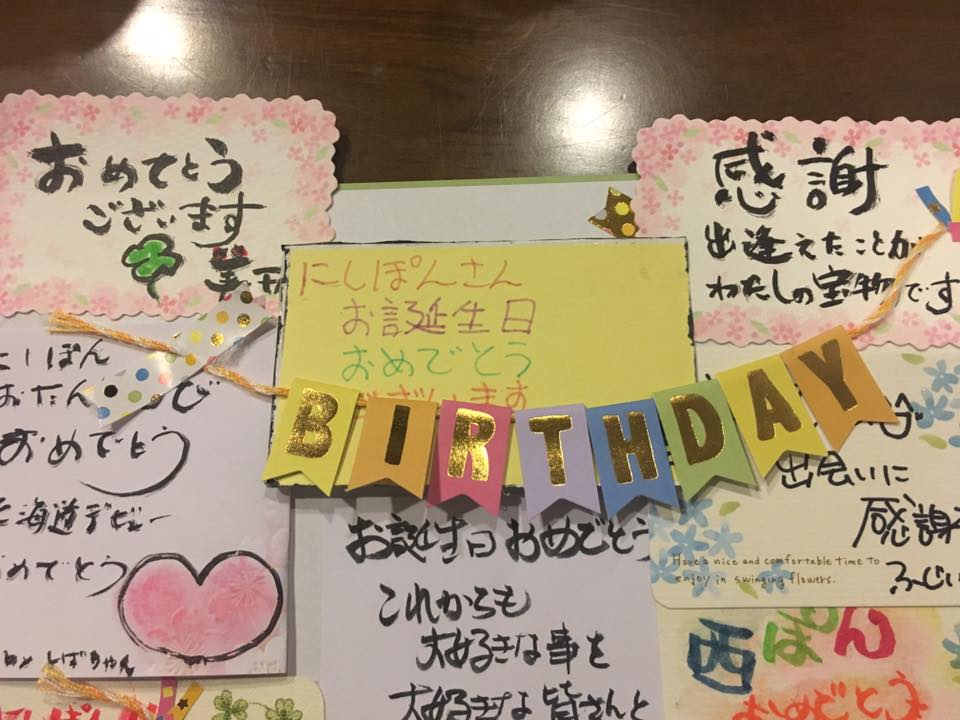 おめでとう
ございます
感謝
出逢えたことが
わたしの宝物です
にしぽんさん
お誕生日
おめでとう
ございます
BIRTHDAY
にしぽん
おたん
おめでとう
海道デビュー
おめでとう
しばちゃん
出会いに
感謝
Have a nice and comfortable time To
enjoy in swinging flowers.
お誕生日おめでとう
これからも
大好きな事を
大好きな皆さんと
西ぽん
おめでとう